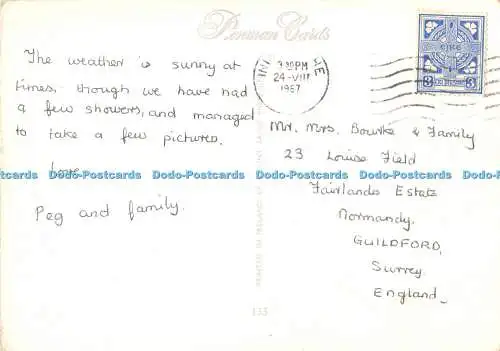 Penman Cards
The weather is sunny at
times, though we have had
a few showers, and managed
to take a few pictures.
Love
Peg and family.
7.30PM
24-VIII
1967
EIRE
3
Mr. Mrs. Bourke & Family
23 Louise Field
Fairlands Estate
Normandy.
GUILDFORD,
Surrey.
England
Dodo-Postcards Dodo-Postcards Dodo-Postcards Dodo-Postcards Dodo-Postcards
PRINTED IN IRELAND
133